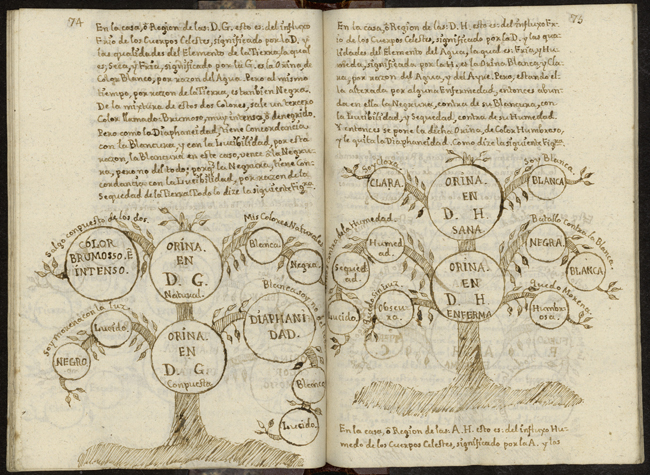 74
En la casa, ò Region de las: D. G. esto es: del influxo
Frio de los Cuerpos Celestes, significado por la D. y las
qualidades del Elemento de la Tierra, la qual
es, Seca, y Fria, significado por la G. es la Orina de
Color Blanco, por razon del Agua. Pero al mismo
tiempo, por razon de la Tierra, es tanbien Negra.
De la mixtura de estos dos Colores, sale un tercero
Color llamado: Brumoso, muy intenso, ò denegrido.
Pero como la Diaphaneidad, tiene Concordancia
con la Blancura, y con la Lucibilidad, por esta
razon, la Blancura en este caso, vence à la Negru-
ra, pero no del todo; porq. la Negrura, tiene Con-
cordancia con la Lucibilidad, por razon de la
Sequedad de la Tierra. Todo lo dize la siguiente Figra.
Salgo compuesto de los dos.
COLOR
BRUMOSSO, È
INTENSO.
ORINA.
EN
D. G.
Natural.
Mis Colores Naturales
Blanca.
Negra.
Soy morena con la Luz.
Lucido.
NEGRO.
ORINA.
EN
D. G.
Compuesta.
Blanca soy, no del
DIAPHANI
DAD.
Blanca
Lucida.
75
En la casa, ò Region de las: D. H. esto es: del influxo Fr-
io de los Cuerpos Celestes, significado por la D. y las qua-
lidades del Elemento del Agua, la qual es, Fria, y Hu-
meda, significada por la H. es la Orina, Blanca, y Cla-
ra, por razon del Agua, y del Ayre. Pero, estando el-
la alterada por alguna Enfermedad, entonces abun-
da en ella la Negrura, contra de su Blancura, con
la Lucibilidad, y Sequedad, contra de su Humedad.
Y entonces se pone la dicha Orina, de Color Humbroso,
y le quita la Diaphaneidad. Como dize la siguiente Figra.
Soy Cloza.
CLARA.
ORINA.
EN
D. H.
SANA
Soy Blanca.
BLANCA
contra de la Humedad.
Humed-
ad.
Sequed
ad.
Lucido.
Obscu-
ra.
ORINA.
EN
D. H
ENFERMA
Batallo contra la Blanca.
NEGRA.
BLANCA
Quedo Morena.
Humbr-
osa.
En la casa, ò Region de las: A. H. esto es: del influxo Hu-
medo de los Cuerpos Celestes, significado por la A. y las